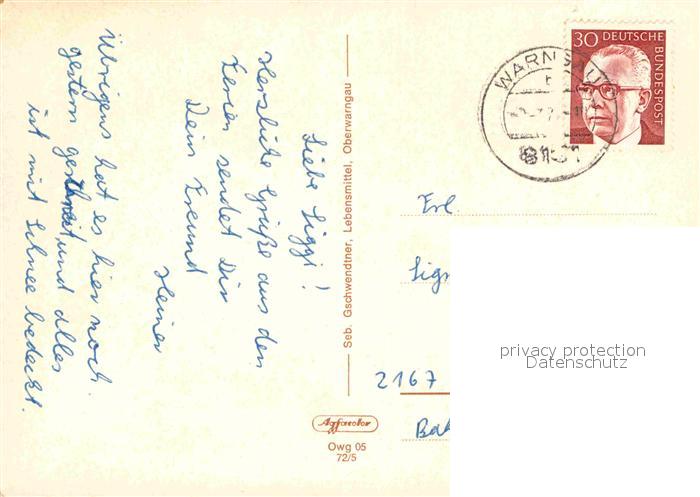 Liebe Siggi!
Herzliche Grüße aus den
Ferien sendet Dir
Dein Freund
Heiner
Übrigens hat es hier noch
gestern geschneit und alles
ist mit Schnee bedeckt.
Seb. Gschwendtner, Lebensmittel, Oberwarngau
30 DEUTSCHE
BUNDESPOST
WARNGAU
8151
Frl.
2167
Agfacolor
Owg 05
72/5
privacy protection
Datenschutz